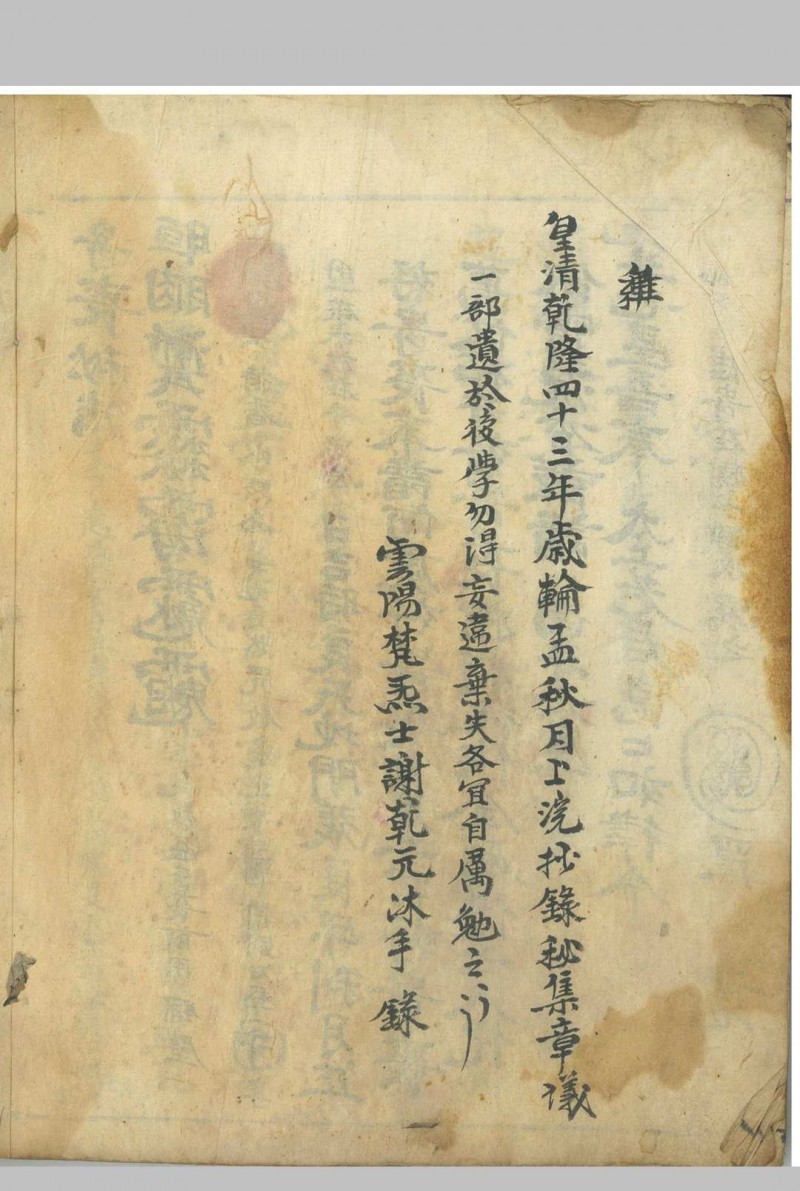 皇清乾隆四十三年歲輪孟秋月上浣抄錄秘集章議
一部遺於後學勿得妄違棄失各宜自属勉之
雲陽梵炁士謝乾元沐手 錄